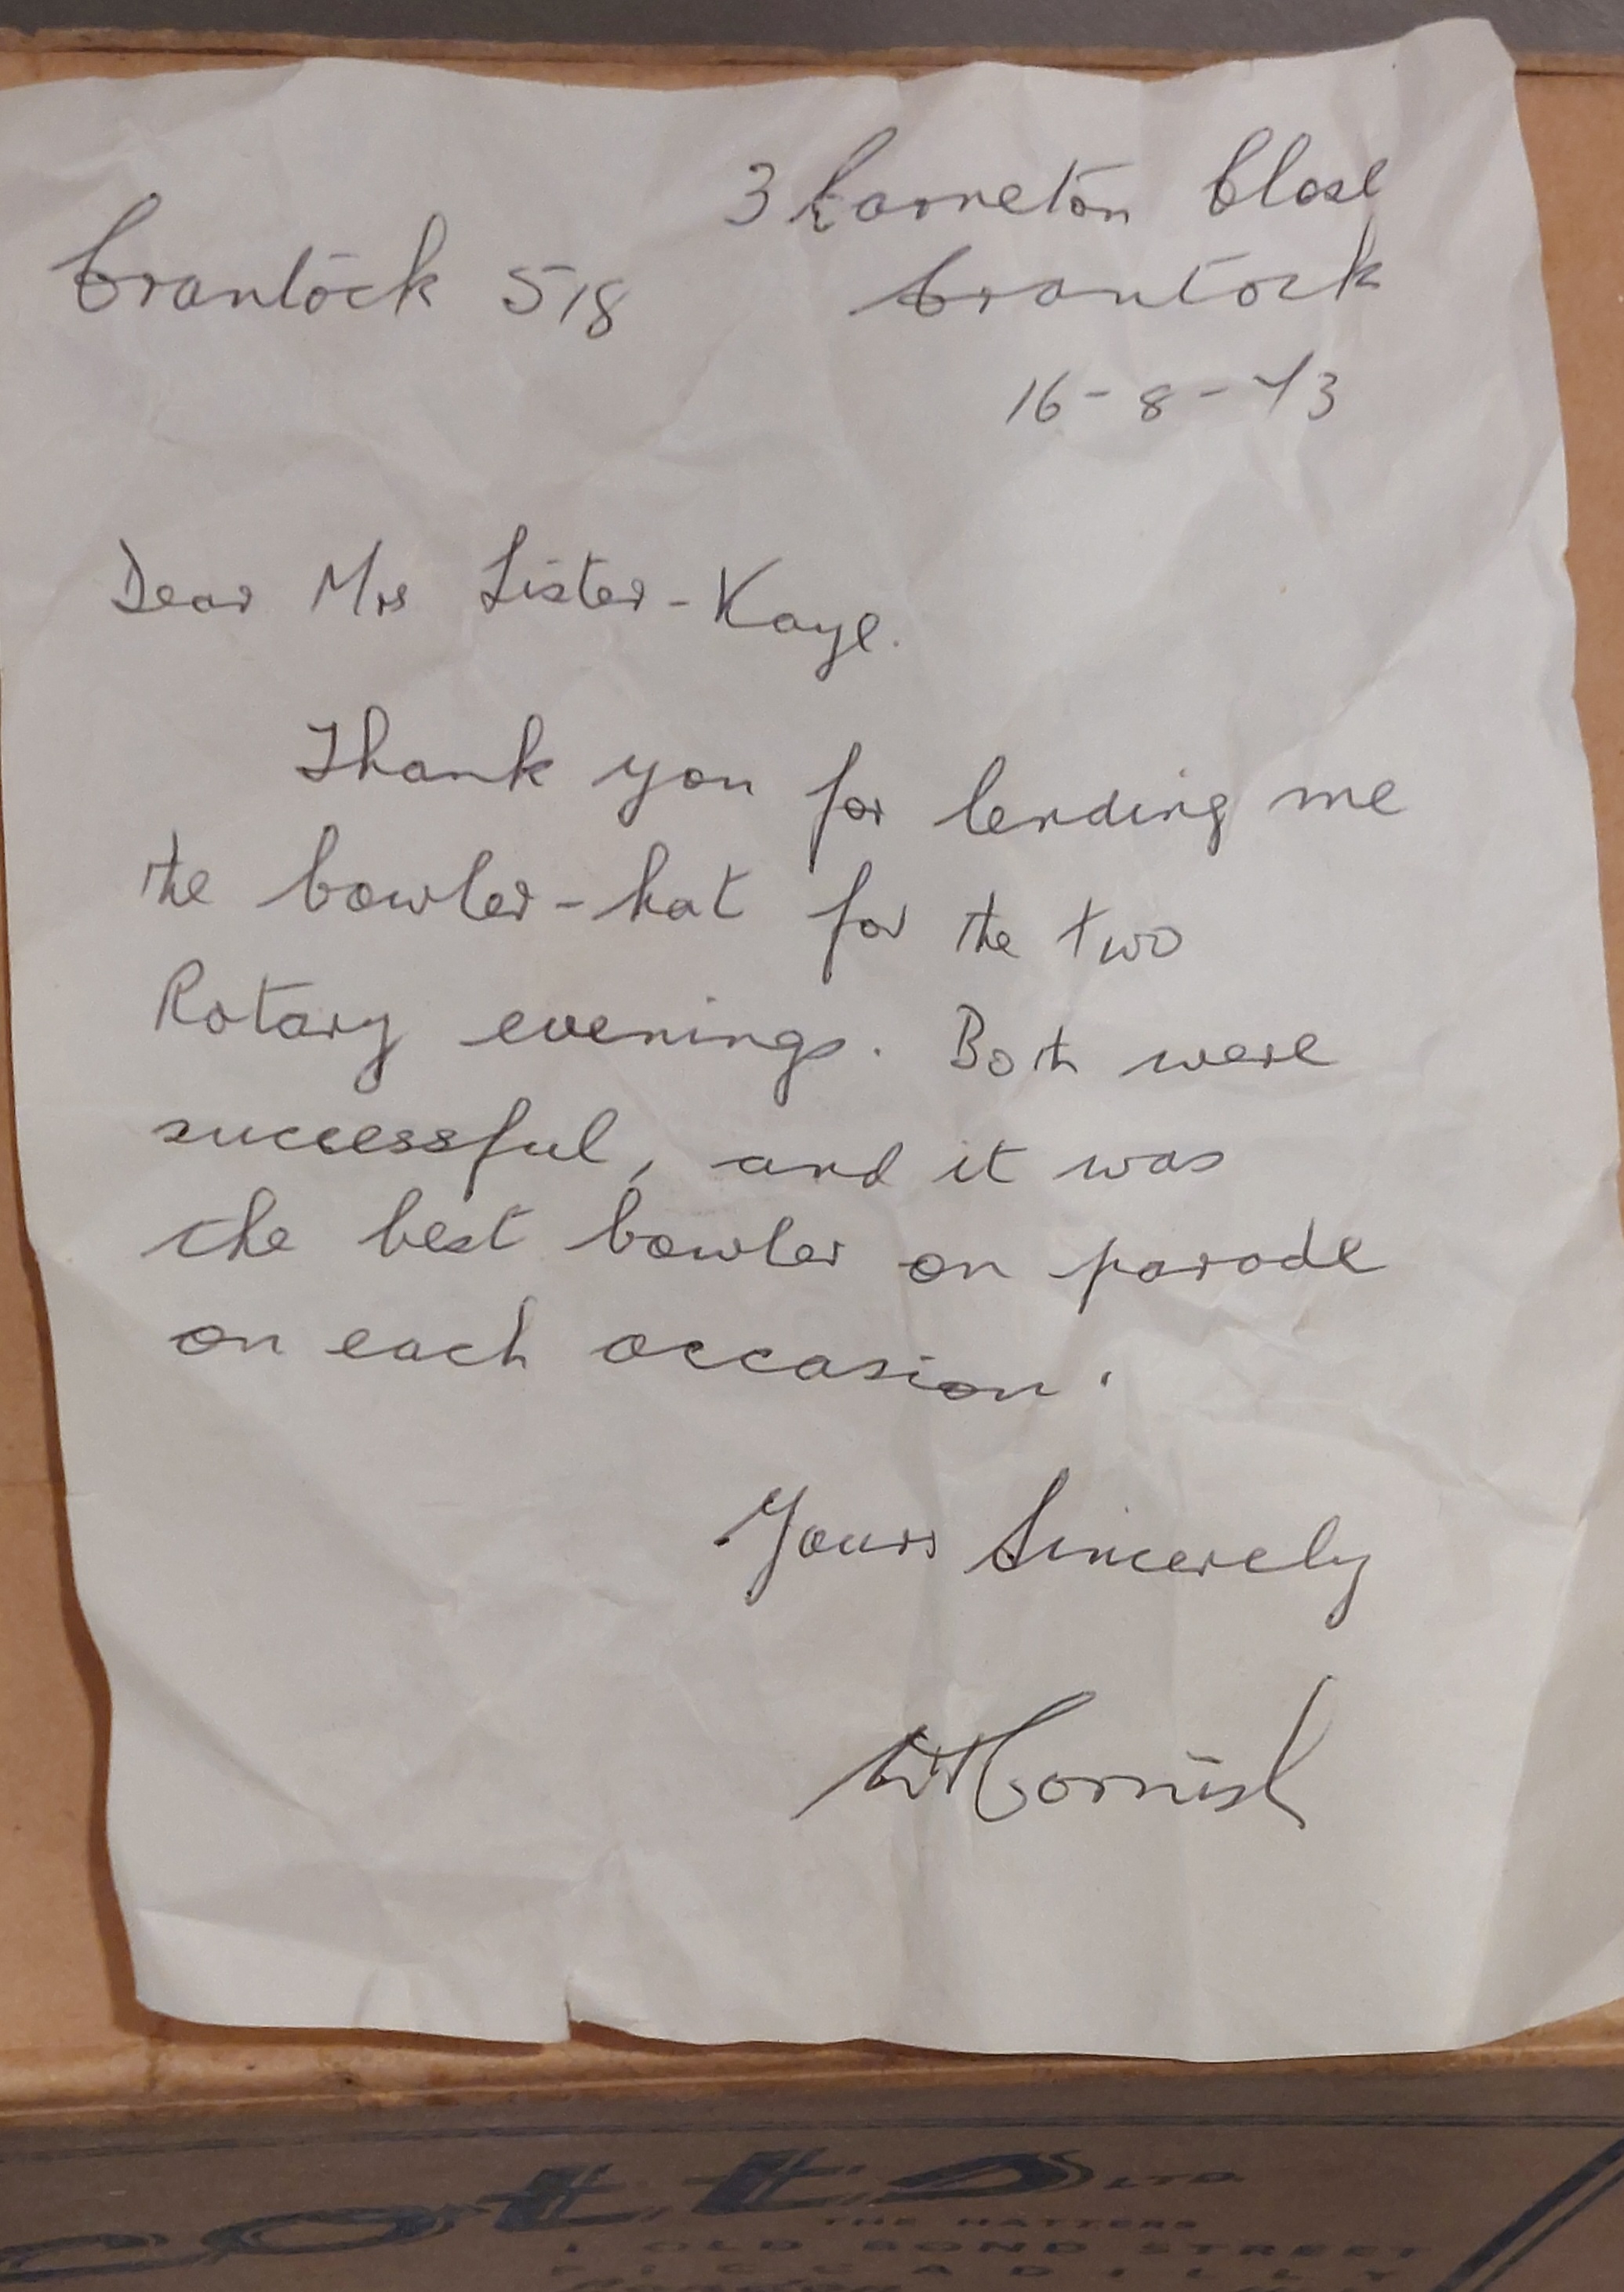 3 Carneton Close
Crantock 518 Crantock
16-8-73
Dear Mrs Lister-Kaye.
Thank you for lending me
the bowler-hat for the two
Rotary evenings. Both were
successful, and it was
the best bowler on parade
on each occasion.
Yours Sincerely
Cornish
cotts LTD.
THE HATTERS
1 OLD BOND STREET
PICCADILLY